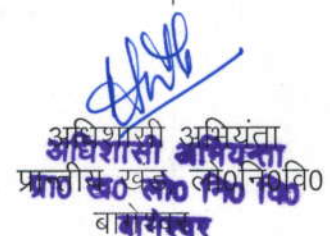 अधिशासी अभियंता
अधिशासी अभियन्ता
प्रान्तीय खंड लो०नि०वि०
प्रा० ख० लो० नि० वि०
बागेश्वर
बागेश्वर